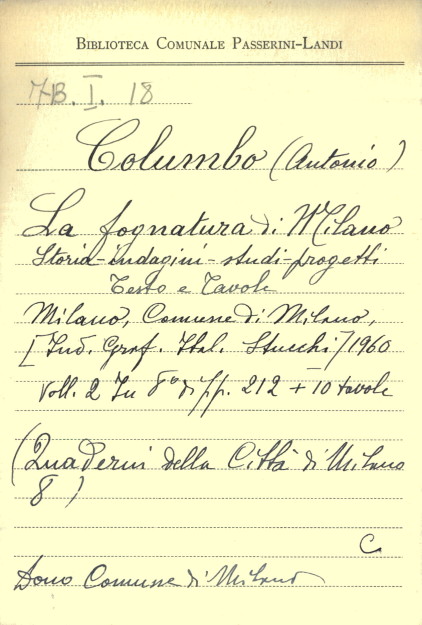 BIBLIOTECA COMUNALE PASSERINI-LANDI
7B. I. 18
Columbo (Antonio)
La fognatura di Milano
Storia-indagini-studi-progetti
Testo e Tavole
Milano, Comune di Milano,
[Ind. Graf. Ital. Stucchi] 1960
Voll. 2 In 8° di pp. 212 + 10 tavole
(Quaderni della Città di Milano
8)
C.
Dono Comune di Milano